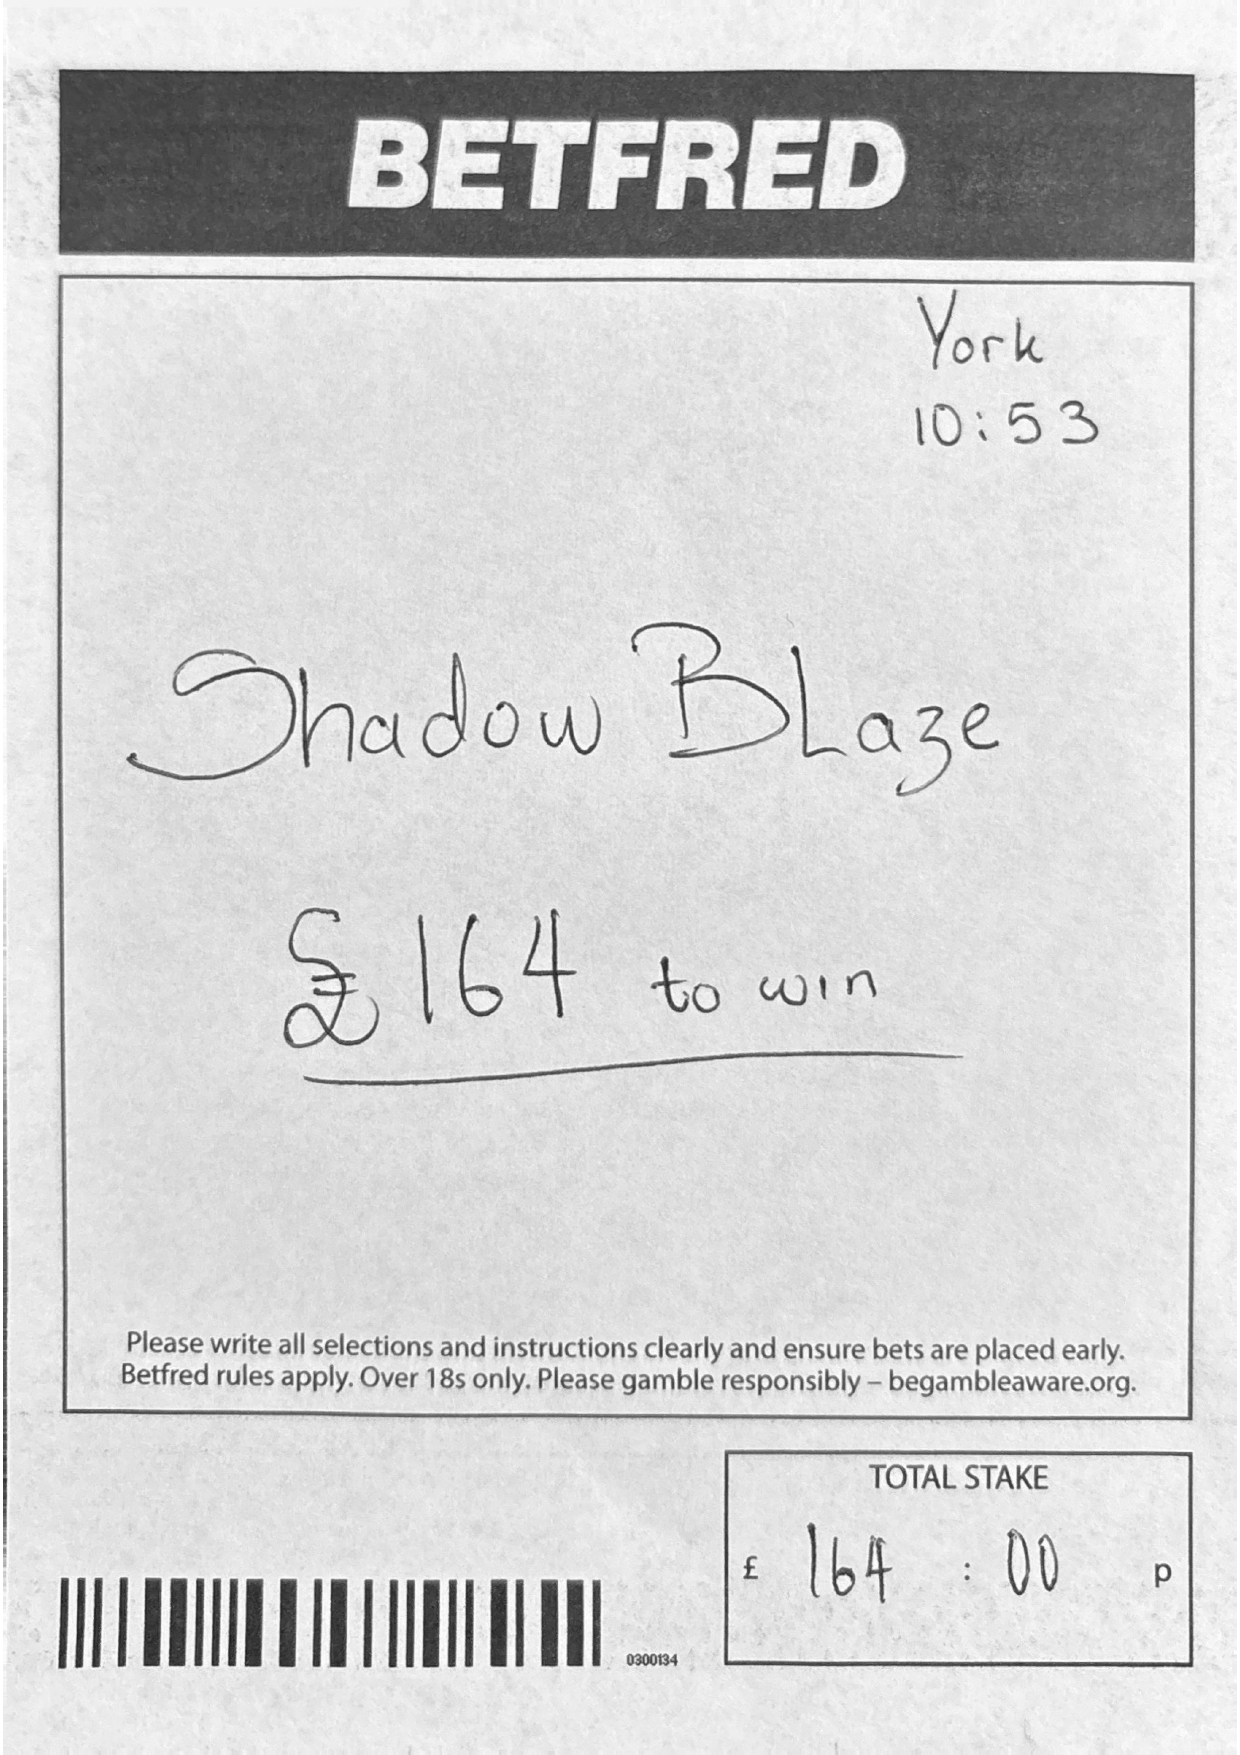 BETFRED
York
10:53
Shadow BLaze
£164 to win
Please write all selections and instructions clearly and ensure bets are placed early.
Betfred rules apply. Over 18s only. Please gamble responsibly – begambleaware.org.
TOTAL STAKE
£ 164 : 00 p
0300134